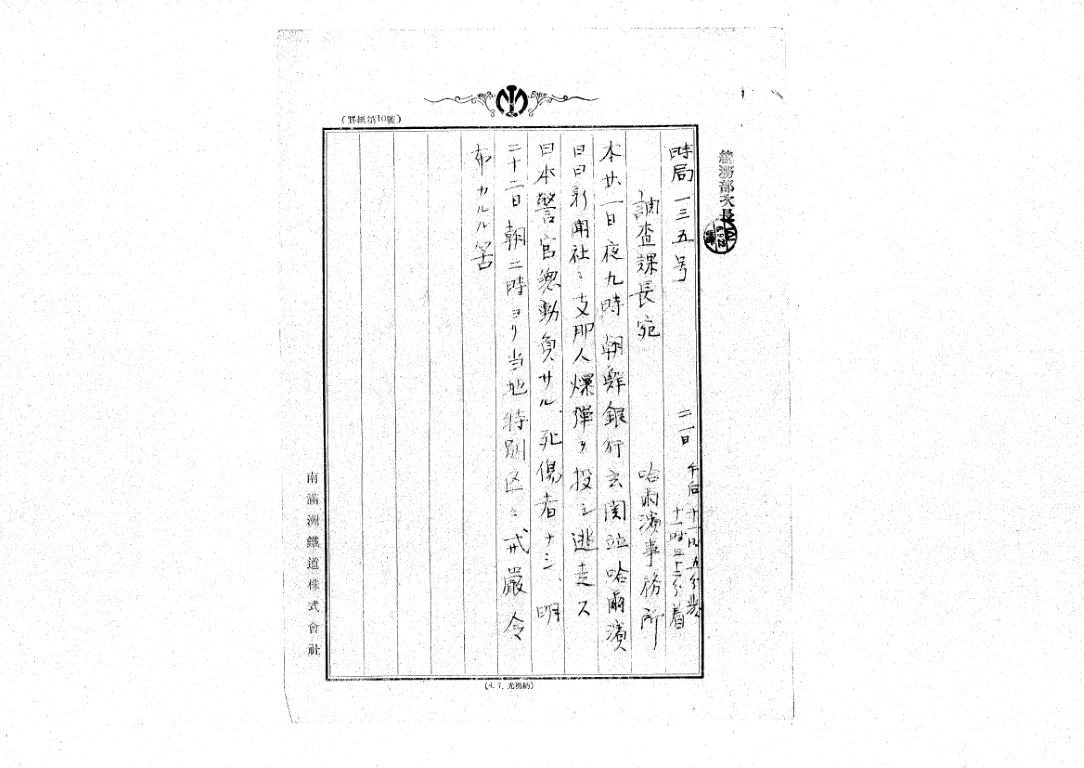 (罫紙第10號)
總務部次長
時局一三五号
二一日 午后 十一時五分発
十一時三十二分着
調査課長宛 哈爾濱事務所
本廿一日夜九時朝鮮銀行玄関並哈爾濱
日日新聞社ニ支那人爆弾ヲ投シ逃走ス
日本警官総動員サル、死傷者ナシ、明
二十二日朝二時ヨリ当地特別区ニ戒厳令
布カルル筈
南滿洲鐵道株式會社